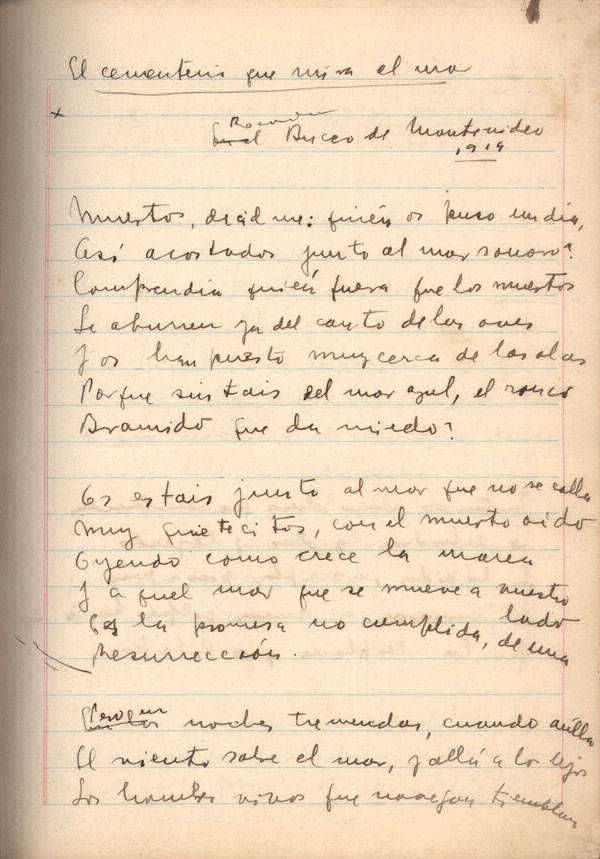 El cementerio que mira al mar
Buceo de Montevideo
1919
Muertos, decidme: quién os puso un dia,
Así acostados junto al mar sonoro?
Comprendía quién fuera que los muertos
Se aburren ya del canto de las aves
Y os han puesto muy cerca de las olas
Porque sintais del mar azul, el ronco
Bramido que da miedo?
Os estais junto al mar que no se calla
Muy quietecitos, con el muerto oido
Oyendo como crece la marea
Y aquel mar que se mueve a vuestro lado
Es la promesa no cumplida, de una
Resurrección.
noches tremendas, cuando aúlla
El viento sobre el mar, y allá a lo lejos
Los hombres vivos que navegan tiemblan